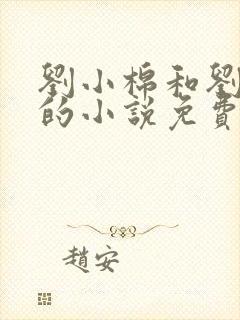 劉小棉和劉
的小說免費
趙安